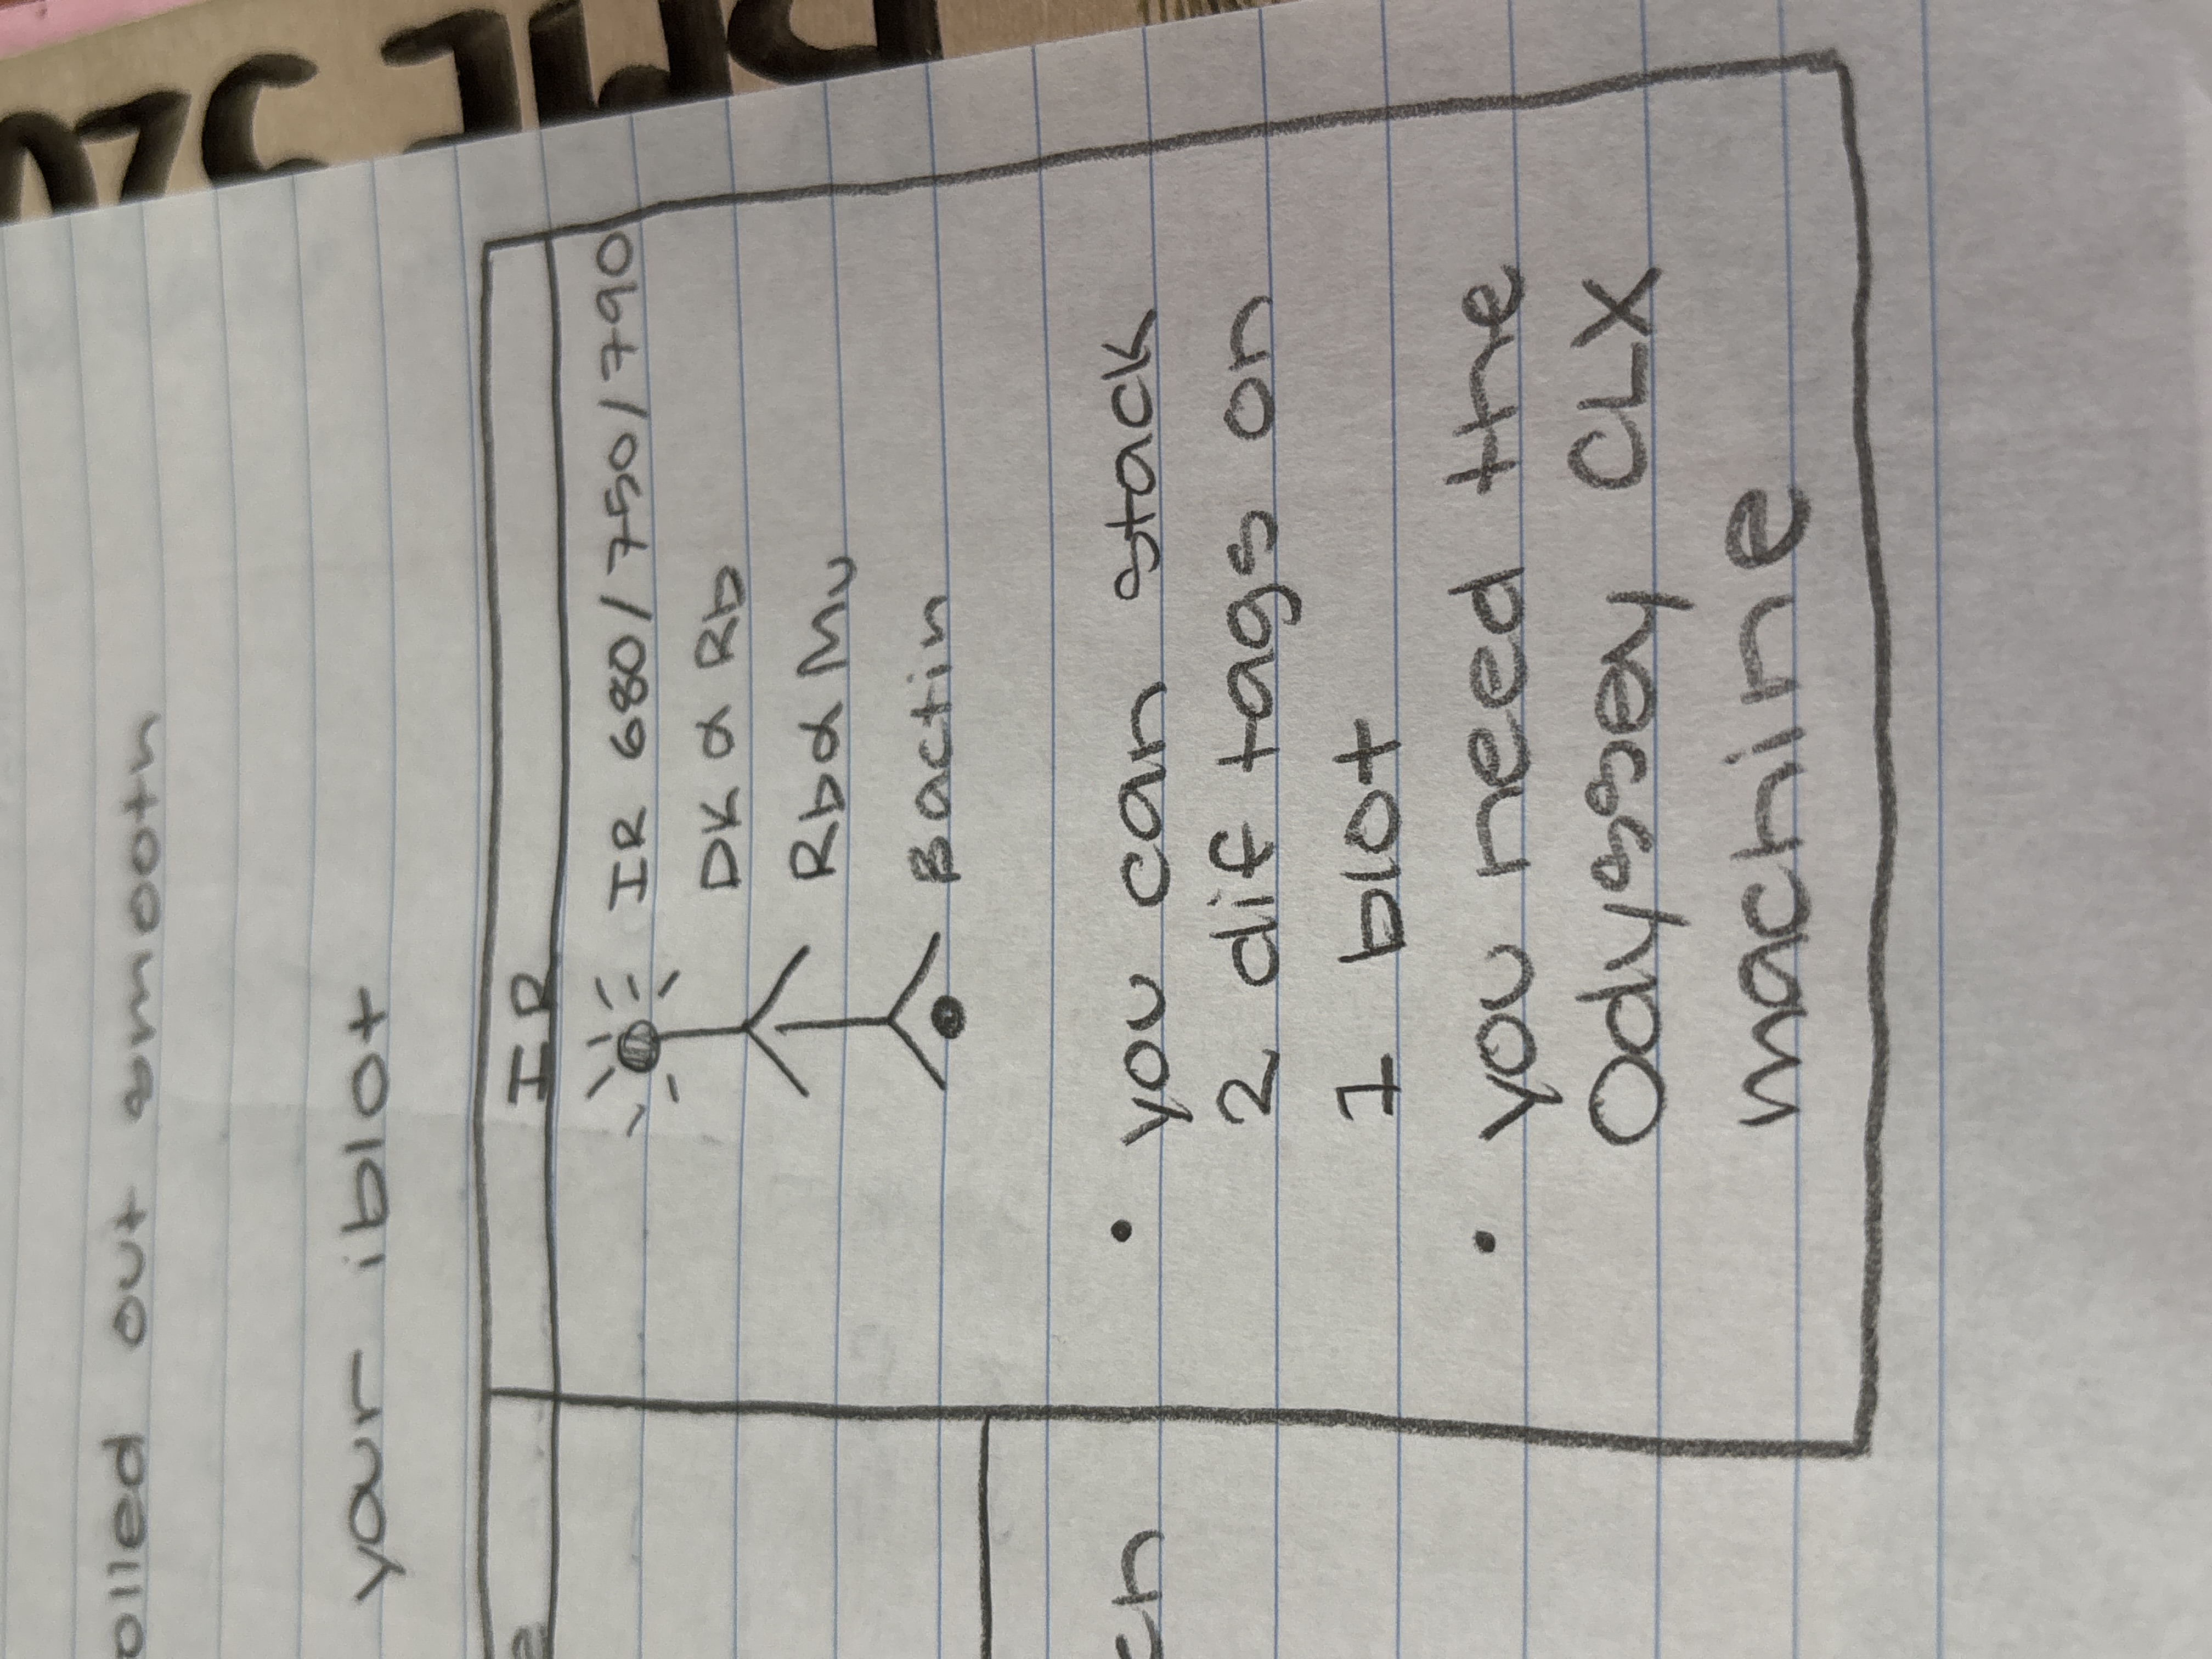 olled out smooth
your iblot
IR
IR 680/750/790
DK α Rb
Rb α Mu
Bactin
• you can stack
2 dif tags on
1 blot
• you need the
Odyssey CLX
machine